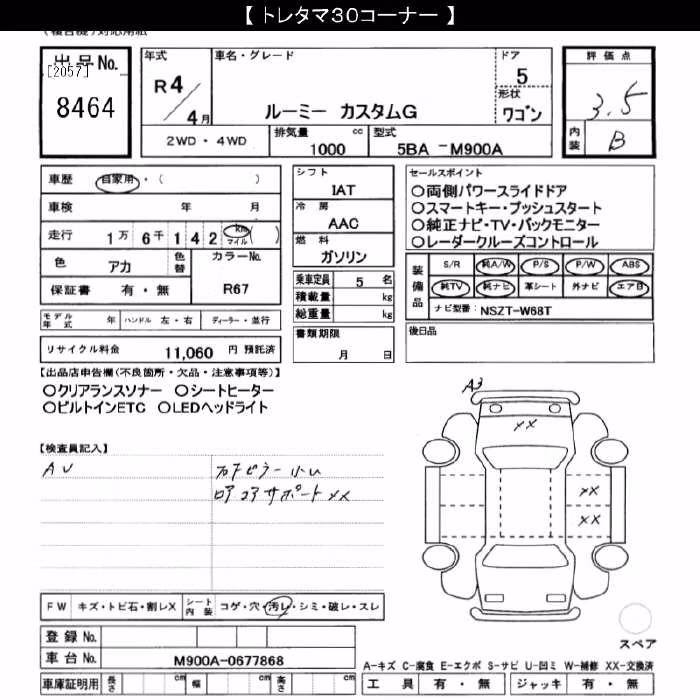 【 トレタマ30コーナー 】
出品No.
[2057]
8464
年式
R4/4月
車名・グレード
ルーミー カスタムG
ドア
5
形状
ワゴン
評価点
3.5
内装
B
2WD・4WD
排気量 cc
1000
型式
5BA -M900A
車歴 自家用・( )
車検 年 月
走行 1万 6千 1 4 2 km マイル ( )
色 アカ
色替
カラーNo.
R67
保証書 有・無
モデル年式 年 ハンドル 左・右 ディーラー・並行
リサイクル料金 11,060 円 預託済
シフト
IAT
冷房
AAC
燃料
ガソリン
乗車定員 5 名
積載量 kg
総重量 kg
書類期限
月 日
セールスポイント
○両側パワースライドドア
○スマートキー・プッシュスタート
○純正ナビ・TV・バックモニター
○レーダークルーズコントロール
装備品
S/R 純A/W P/S P/W ABS
純TV 純ナビ 革シート 外ナビ エアB
ナビ型番: NSZT-W68T
後日品
【出品店申告欄(不良箇所・欠品・注意事項等)】
○クリアランスソナー ○シートヒーター
○ビルトインETC ○LEDヘッドライト
【検査員記入】
AU
右Fピラー小U
ロアコアサポートXX
A3
XX
XX
XX
FW キズ・トビ石・割レX シート内装 コゲ・穴・汚レ・シミ・破レ・スレ
登録No.
車台No. M900A-0677868
車庫証明用 長さ cm 幅 cm 高さ cm
スペア
A-キズ C-腐食 E-エクボ S-サビ U-凹ミ W-補修 XX-交換済
工具 有・無 ジャッキ 有・無